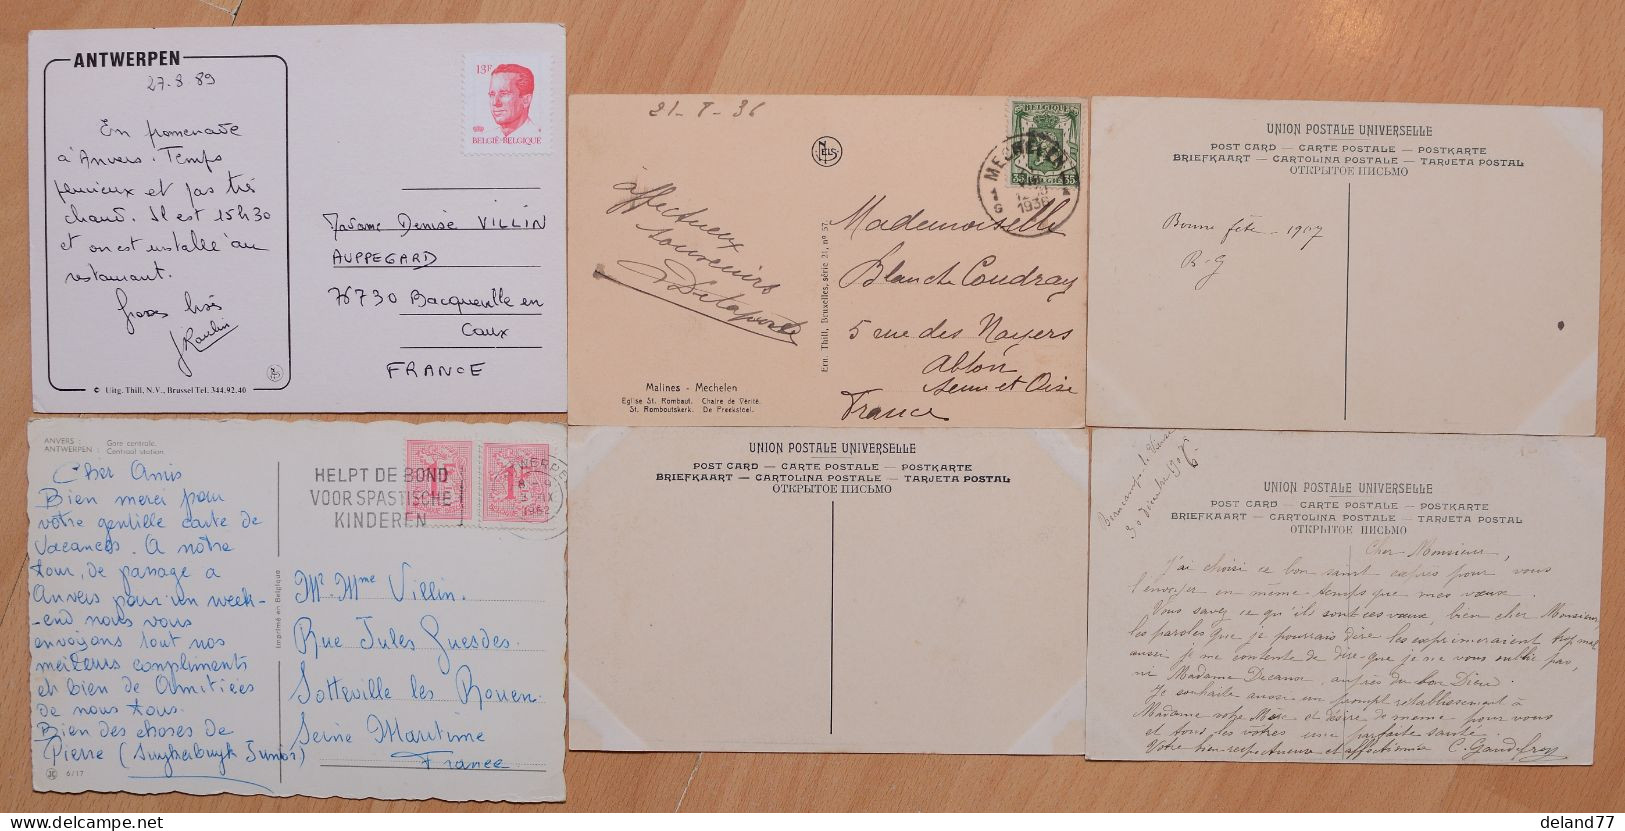 ANTWERPEN
27-8-89
En promenade
à Anvers. Temps
pluvieux et pas très
chaud. Il est 15h30
et on est installé au
restaurant.
Gross bisés
J Raulin
© Uitg. Thill, N.V., Brussel Tel. 344.92.40
13F
BELGIË-BELGIQUE
Madame Denise VILLIN
AUPPEGARD
76730 Bacqueville en
Caux
FRANCE
21-8-36
NELS
BELGIQUE
35 BELGIË 35
MECHELEN
1936
Affectueux
souvenirs
Delaporte
Ern. Thill, Bruxelles, série 21, no 57
Mademoiselle
Blanche Coudray
5 rue des Noyers
Ablon
Seine et Oise
France
Malines - Mechelen
Eglise St. Rombaut. Chaire de Vérité.
St. Romboutskerk. De Preekstoel.
UNION POSTALE UNIVERSELLE
POST CARD — CARTE POSTALE — POSTKARTE
BRIEFKAART — CARTOLINA POSTALE — TARJETA POSTAL
ОТКРЫТОЕ ПИСЬМО
Bonne fête - 1907
B-G
ANVERS : Gare centrale.
ANTWERPEN : Centraal station.
Cher Amis
Bien merci pour
votre gentille carte de
Vacances. A notre
tour, de passage a
Anvers pour un week-
-end nous vous
envoyons tout nos
meilleurs compliments
et bien de Amitiées
de nous tous.
Bien des choses de
Pierre (Suykerbuyk Junior)
6/17
Imprimé en Belgique
HELPT DE BOND
VOOR SPASTISCHE
KINDEREN
1F
1F
1962
Mr. Mme Villin.
Rue Jules Guesdes.
Sotteville les Rouen.
Seine Maritime
France
UNION POSTALE UNIVERSELLE
POST CARD — CARTE POSTALE — POSTKARTE
BRIEFKAART — CARTOLINA POSTALE — TARJETA POSTAL
ОТКРЫТОЕ ПИСЬМО
30 décembre 1906
UNION POSTALE UNIVERSELLE
POST CARD — CARTE POSTALE — POSTKARTE
BRIEFKAART — CARTOLINA POSTALE — TARJETA POSTAL
ОТКРЫТОЕ ПИСЬМО
Cher Monsieur,
J'ai choisi ce bon saint exprès pour vous
l'envoyer en même-temps que mes vœux.
Vous savez ce qu'ils sont ces vœux, bien cher Monsieur
les paroles que je pourrais dire les exprimeraient trop mal
aussi je me contente de dire que je ne vous oublie pas,
ni Madame Decaux, auprès du bon Dieu.
Je souhaite aussi un prompt rétablissement à
Madame votre Mère et désire de même pour vous
et tous les vôtres une parfaite santé
Votre bien respectueuse et affectionnée C. Gaudefroy
deland77